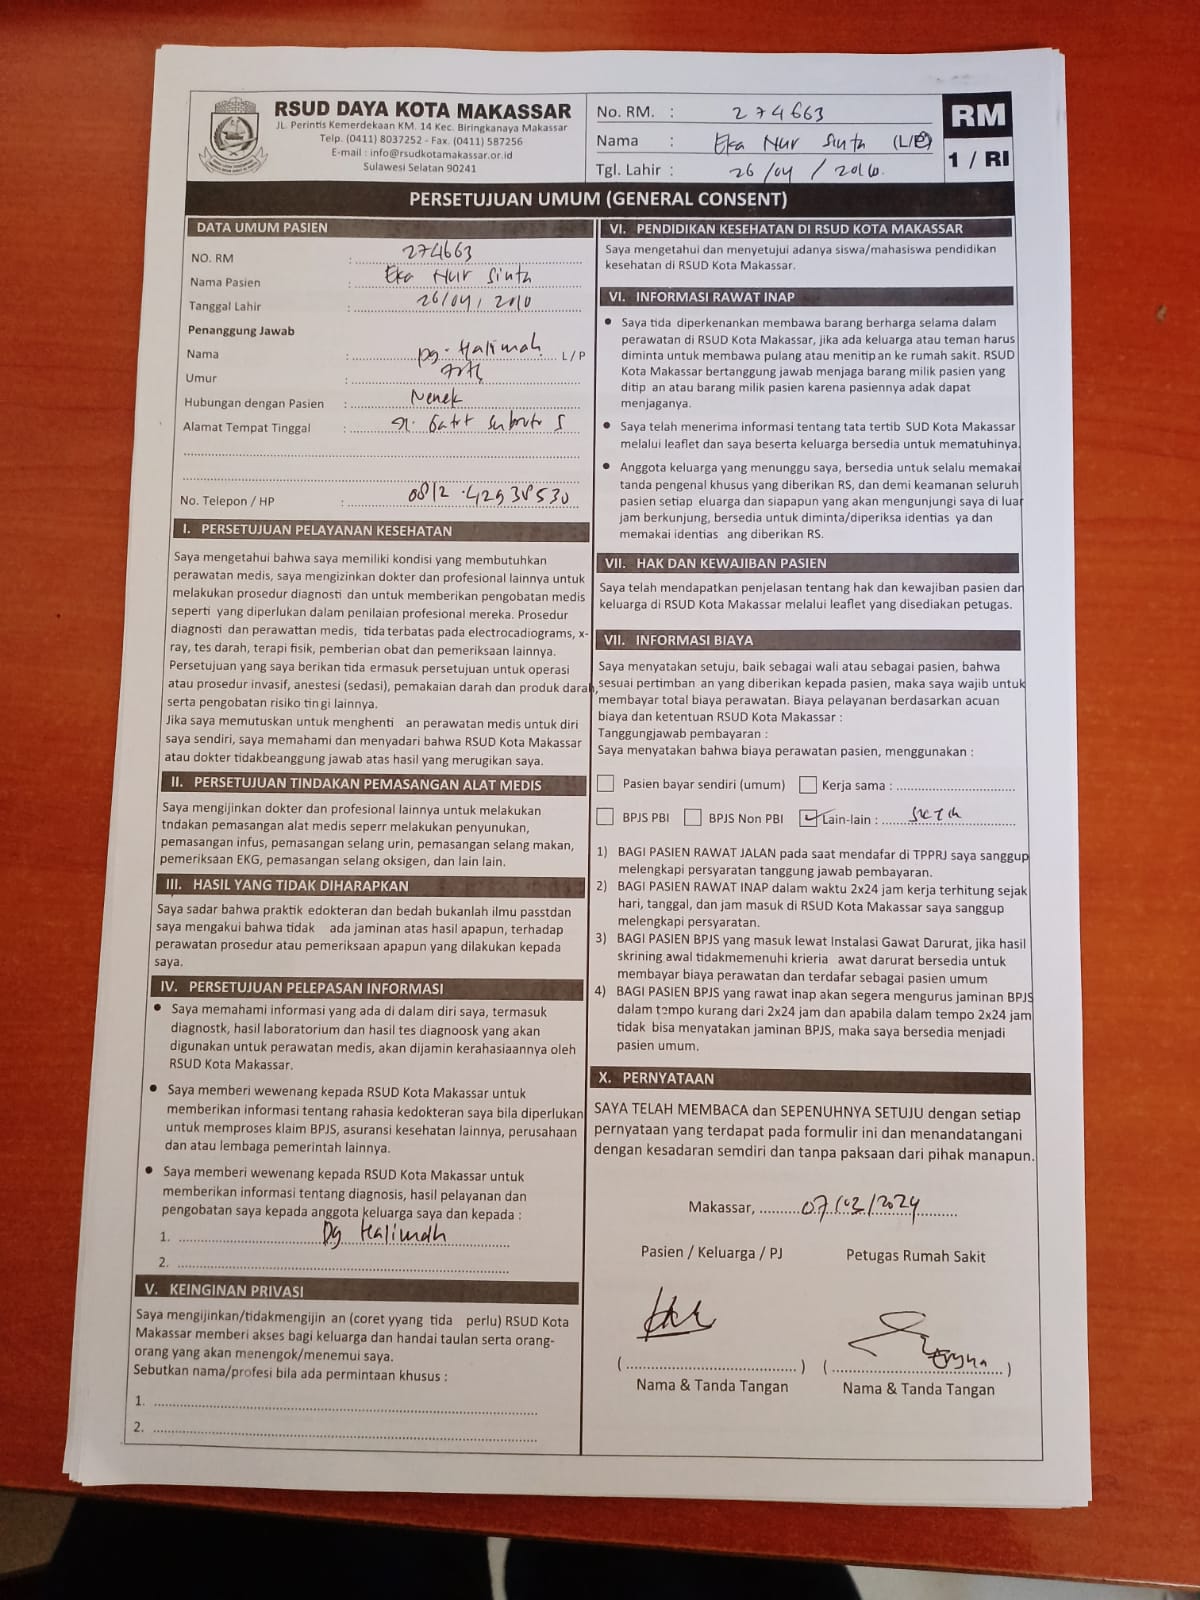 RSUD DAYA KOTA MAKASSAR
JL. Perintis Kemerdekaan KM. 14 Kec. Biringkanaya Makassar
Telp. (0411) 8037252 - Fax. (0411) 587256
E-mail : info@rsudkotamakassar.or.id
Sulawesi Selatan 90241
No. RM. : 274663
Nama : Eka Nur Sinta (L/P)
Tgl. Lahir : 26/04/2010.
RM
1 / RI
PERSETUJUAN UMUM (GENERAL CONSENT)
DATA UMUM PASIEN
NO. RM : 274663
Nama Pasien : Eka Nur Sinta
Tanggal Lahir : 26/04, 2010
Penanggung Jawab
Nama : Dg. Halimah L/P
Umur :
Hubungan dengan Pasien : Nenek
Alamat Tempat Tinggal : Jl. Gatot Subroto
No. Telepon / HP : 0812.42938530
I. PERSETUJUAN PELAYANAN KESEHATAN
Saya mengetahui bahwa saya memiliki kondisi yang membutuhkan
perawatan medis, saya mengizinkan dokter dan profesional lainnya untuk
melakukan prosedur diagnosti dan untuk memberikan pengobatan medis
seperti yang diperlukan dalam penilaian profesional mereka. Prosedur
diagnosti dan perawattan medis, tida terbatas pada electrocadiograms, x-
ray, tes darah, terapi fisik, pemberian obat dan pemeriksaan lainnya.
Persetujuan yang saya berikan tida ermasuk persetujuan untuk operasi
atau prosedur invasif, anestesi (sedasi), pemakaian darah dan produk darah,
serta pengobatan risiko tin gi lainnya.
Jika saya memutuskan untuk menghenti an perawatan medis untuk diri
saya sendiri, saya memahami dan menyadari bahwa RSUD Kota Makassar
atau dokter tidakbeanggung jawab atas hasil yang merugikan saya.
II. PERSETUJUAN TINDAKAN PEMASANGAN ALAT MEDIS
Saya mengijinkan dokter dan profesional lainnya untuk melakukan
tndakan pemasangan alat medis seperr melakukan penyunukan,
pemasangan infus, pemasangan selang urin, pemasangan selang makan,
pemeriksaan EKG, pemasangan selang oksigen, dan lain lain.
III. HASIL YANG TIDAK DIHARAPKAN
Saya sadar bahwa praktik edokteran dan bedah bukanlah ilmu passtdan
saya mengakui bahwa tidak ada jaminan atas hasil apapun, terhadap
perawatan prosedur atau pemeriksaan apapun yang dilakukan kepada
saya.
IV. PERSETUJUAN PELEPASAN INFORMASI
• Saya memahami informasi yang ada di dalam diri saya, termasuk
diagnostk, hasil laboratorium dan hasil tes diagnoosk yang akan
digunakan untuk perawatan medis, akan dijamin kerahasiaannya oleh
RSUD Kota Makassar.
• Saya memberi wewenang kepada RSUD Kota Makassar untuk
memberikan informasi tentang rahasia kedokteran saya bila diperlukan
untuk memproses klaim BPJS, asuransi kesehatan lainnya, perusahaan
dan atau lembaga pemerintah lainnya.
• Saya memberi wewenang kepada RSUD Kota Makassar untuk
memberikan informasi tentang diagnosis, hasil pelayanan dan
pengobatan saya kepada anggota keluarga saya dan kepada :
1. Dg Halimah
2.
V. KEINGINAN PRIVASI
Saya mengijinkan/tidakmengijin an (coret yyang tida perlu) RSUD Kota
Makassar memberi akses bagi keluarga dan handai taulan serta orang-
orang yang akan menengok/menemui saya.
Sebutkan nama/profesi bila ada permintaan khusus :
1.
2.
VI. PENDIDIKAN KESEHATAN DI RSUD KOTA MAKASSAR
Saya mengetahui dan menyetujui adanya siswa/mahasiswa pendidikan
kesehatan di RSUD Kota Makassar.
VI. INFORMASI RAWAT INAP
• Saya tida diperkenankan membawa barang berharga selama dalam
perawatan di RSUD Kota Makassar, jika ada keluarga atau teman harus
diminta untuk membawa pulang atau menitip an ke rumah sakit. RSUD
Kota Makassar bertanggung jawab menjaga barang milik pasien yang
ditip an atau barang milik pasien karena pasiennya adak dapat
menjaganya.
• Saya telah menerima informasi tentang tata tertib SUD Kota Makassar
melalui leaflet dan saya beserta keluarga bersedia untuk mematuhinya.
• Anggota keluarga yang menunggu saya, bersedia untuk selalu memakai
tanda pengenal khusus yang diberikan RS, dan demi keamanan seluruh
pasien setiap eluarga dan siapapun yang akan mengunjungi saya di luar
jam berkunjung, bersedia untuk diminta/diperiksa identias ya dan
memakai identias ang diberikan RS.
VII. HAK DAN KEWAJIBAN PASIEN
Saya telah mendapatkan penjelasan tentang hak dan kewajiban pasien dan
keluarga di RSUD Kota Makassar melalui leaflet yang disediakan petugas.
VII. INFORMASI BIAYA
Saya menyatakan setuju, baik sebagai wali atau sebagai pasien, bahwa
sesuai pertimban an yang diberikan kepada pasien, maka saya wajib untuk
membayar total biaya perawatan. Biaya pelayanan berdasarkan acuan
biaya dan ketentuan RSUD Kota Makassar :
Tanggungjawab pembayaran :
Saya menyatakan bahwa biaya perawatan pasien, menggunakan :
Pasien bayar sendiri (umum) Kerja sama :
BPJS PBI BPJS Non PBI Lain-lain :
1) BAGI PASIEN RAWAT JALAN pada saat mendafar di TPPRJ saya sanggup
melengkapi persyaratan tanggung jawab pembayaran.
2) BAGI PASIEN RAWAT INAP dalam waktu 2x24 jam kerja terhitung sejak
hari, tanggal, dan jam masuk di RSUD Kota Makassar saya sanggup
melengkapi persyaratan.
3) BAGI PASIEN BPJS yang masuk lewat Instalasi Gawat Darurat, jika hasil
skrining awal tidakmemenuhi krieria awat darurat bersedia untuk
membayar biaya perawatan dan terdafar sebagai pasien umum
4) BAGI PASIEN BPJS yang rawat inap akan segera mengurus jaminan BPJS
dalam tempo kurang dari 2x24 jam dan apabila dalam tempo 2x24 jam
tidak bisa menyatakan jaminan BPJS, maka saya bersedia menjadi
pasien umum.
X. PERNYATAAN
SAYA TELAH MEMBACA dan SEPENUHNYA SETUJU dengan setiap
pernyataan yang terdapat pada formulir ini dan menandatangani
dengan kesadaran semdiri dan tanpa paksaan dari pihak manapun.
Makassar, 07/03/2024
Pasien / Keluarga / PJ Petugas Rumah Sakit
Nama & Tanda Tangan Nama & Tanda Tangan